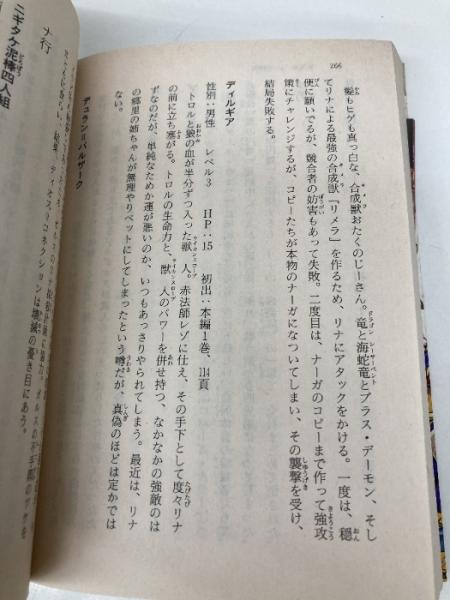 266
髪もヒゲも真っ白な、合成獣おたくのじーさん。竜と海蛇竜とブラス・デーモン、そし
てリナによる最強の合成獣『リメラ』を作るため、リナにアタックをかける。一度は、穏
便に願いでるが、競合者の妨害もあって失敗。二度目は、ナーガのコピーまで作って強攻
策にチャレンジするが、コピーたちが本物のナーガになついてしまい、その襲撃を受け、
結局失敗する。
ディルギア
性別:男性 レベル3 HP:15 初出:本編1巻、114頁
トロルと狼の血が半分ずつ入った獣人。赤法師レゾに仕え、その手下として度々リナ
の前に立ち塞がる。トロルの生命力と、獣人のパワーを併せ持つ、なかなかの強敵のは
ずなのだが、単純なためか運が悪いのか、いつもあっさりやられてしまう。最近は、リナ
の郷里の姉ちゃんが無理やりペットにしてしまったという噂だが、真偽のほどは定かでは
ない。
デュラン=バルザーク
ナ行
ニギタケ泥棒四人組